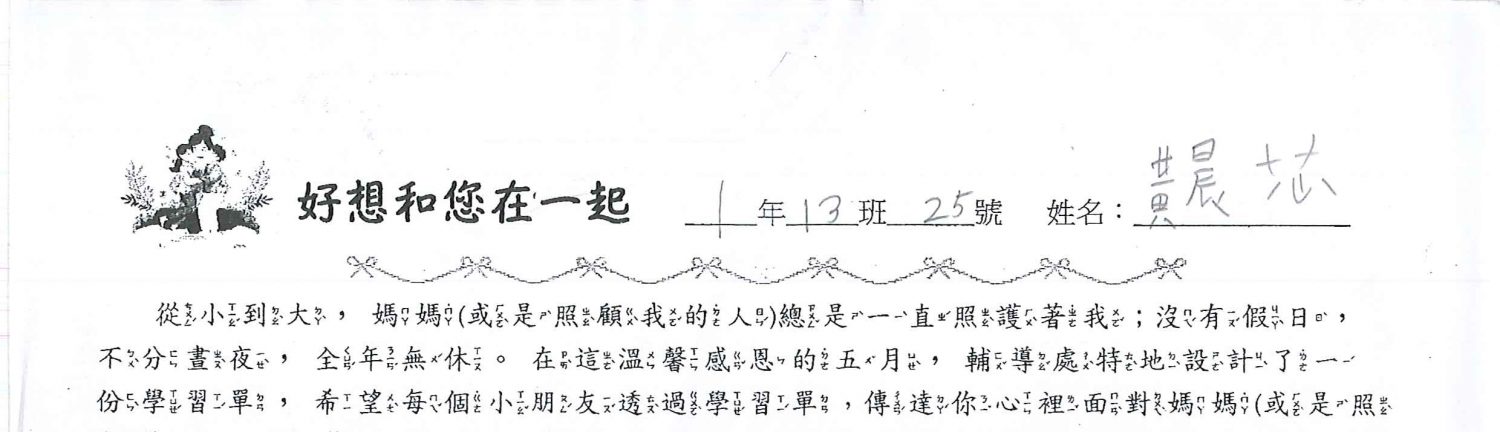 好想和您在一起 1年13班25號 姓名:黃晨芯
從小到大,媽媽(或是照顧我的人)總是一直照護著我;沒有假日,
不分晝夜,全年無休。在這溫馨感恩的五月,輔導處特地設計了一
份學習單,希望每個小朋友透過學習單,傳達你心裡面對媽媽(或是照